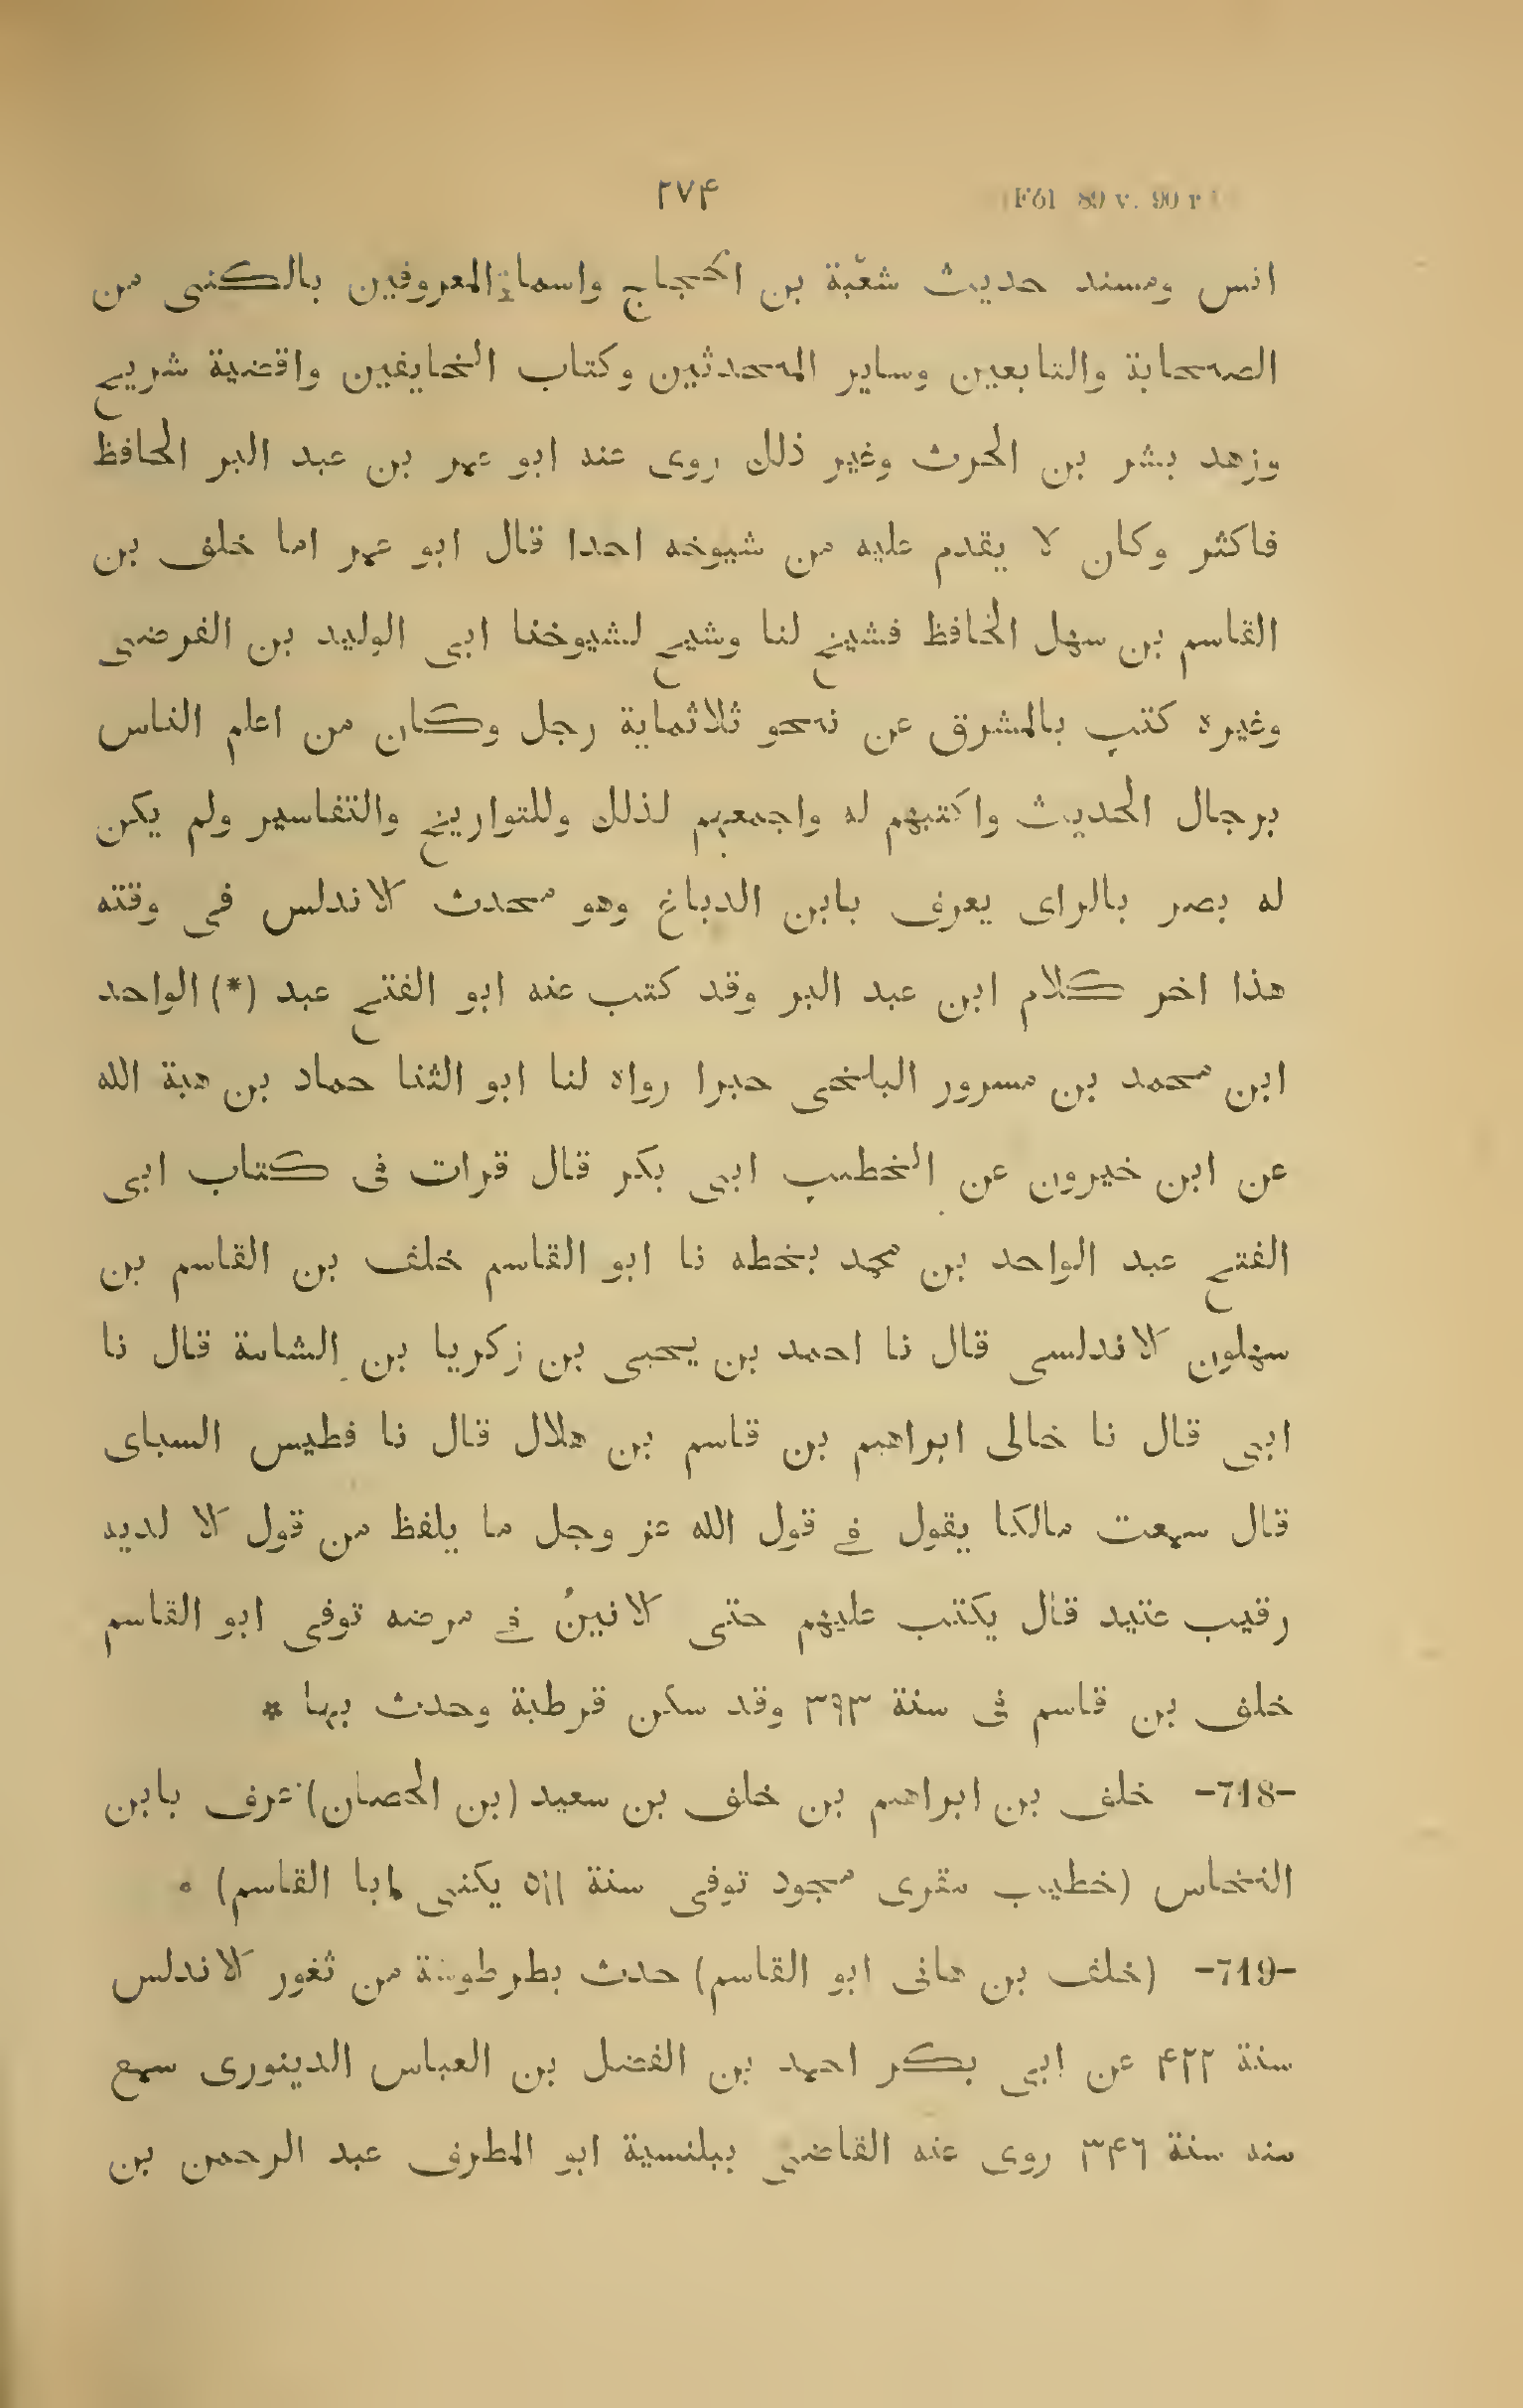 ٢٧۴ Fól 89 v. 90 r
انس ومسند حديث شعبة بن الحجاج واسماء المعروفين بالكنى من
الصحابة والتابعين وساير المحدثين وكتاب الخايفين واقضية شريح
وزهد بشر بن الحرث وغير ذلك روى عنه ابو عمر بن عبد البر الحافظ
فاكثر وكان لا يقدم عليه من شيوخه احدا قال ابو عمر اما خلف بن
القاسم بن سهل الحافظ فشيخ لنا وشيخ لشيوخنا ابى الوليد بن الفرضى
وغيره كتب بالمشرق عن نحو ثلاثماية رجل وكان من اعلم الناس
برجال الحديث واكتبهم له واجمعهم لذلك وللتواريخ والتفاسير ولم يكن
له بصر بالراى يعرف بابن الدباغ وهو محدث الاندلس فى وقته
هذا اخر كلام ابن عبد البر وقد كتب عنه ابو الفتح عبد (*) الواحد
ابن محمد بن مسرور البلخى حبرا رواه لنا ابو الثنا حماد بن هبة الله
عن ابن خيرون عن الخطيب ابى بكر قال قرات فى كتاب ابى
الفتح عبد الواحد بن محمد بخطه نا ابو القاسم خلف بن القاسم بن
سهلون الاندلسى قال نا احمد بن يحيى بن زكريا بن الشامة قال نا
ابى قال نا خالى ابراهيم بن قاسم بن هلال قال نا فطيس السباى
قال سمعت مالكا يقول فى قول الله عز وجل ما يلفظ من قول الا لديه
رقيب عتيد قال يكتب عليهم حتى الانينُ فى مرضه توفى ابو القاسم
خلف بن قاسم فى سنة ٣٩٣ وقد سكن قرطبة وحدث بها *
-718- خلف بن ابراهيم بن خلف بن سعيد (بن الحصان) عرف بابن
النخاس (خطيب مقرى مجود توفى سنة ٥١١ يكنى ابا القاسم) ٠
-719- (خلف بن هانى ابو القاسم) حدث بطرطوشة من ثغور الاندلس
سنة ۴٢٢ عن ابى بكر احمد بن الفضل بن العباس الدينورى سمع
منه سنة ٣۴٦ روى عنه القاضى ببلنسية ابو المطرف عبد الرحمن بن